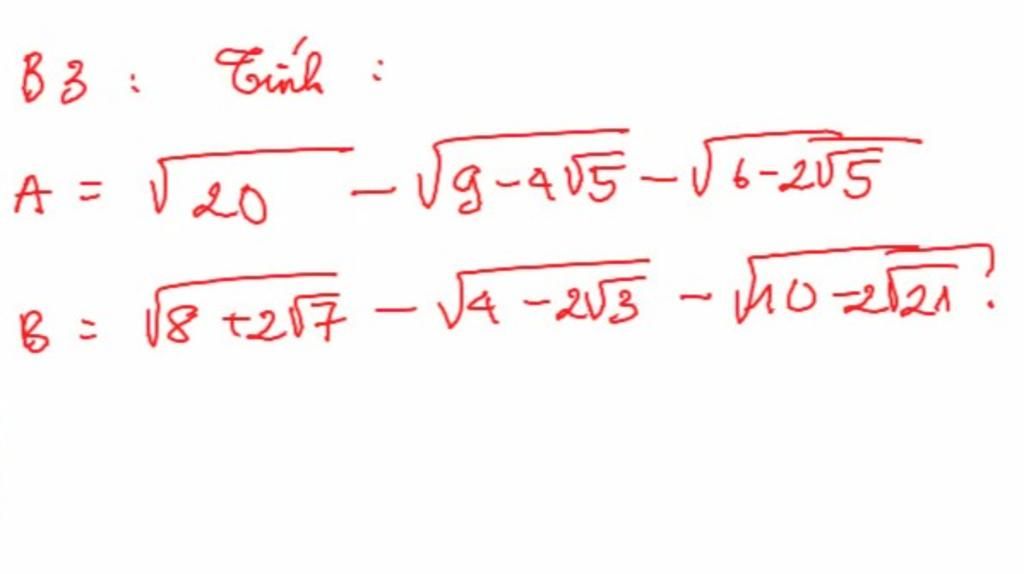 B3 : Tính :
A = √20 - √(9-4√5) - √(6-2√5)
B = √(8+2√7) - √(4-2√3) - √(10-2√21) ?